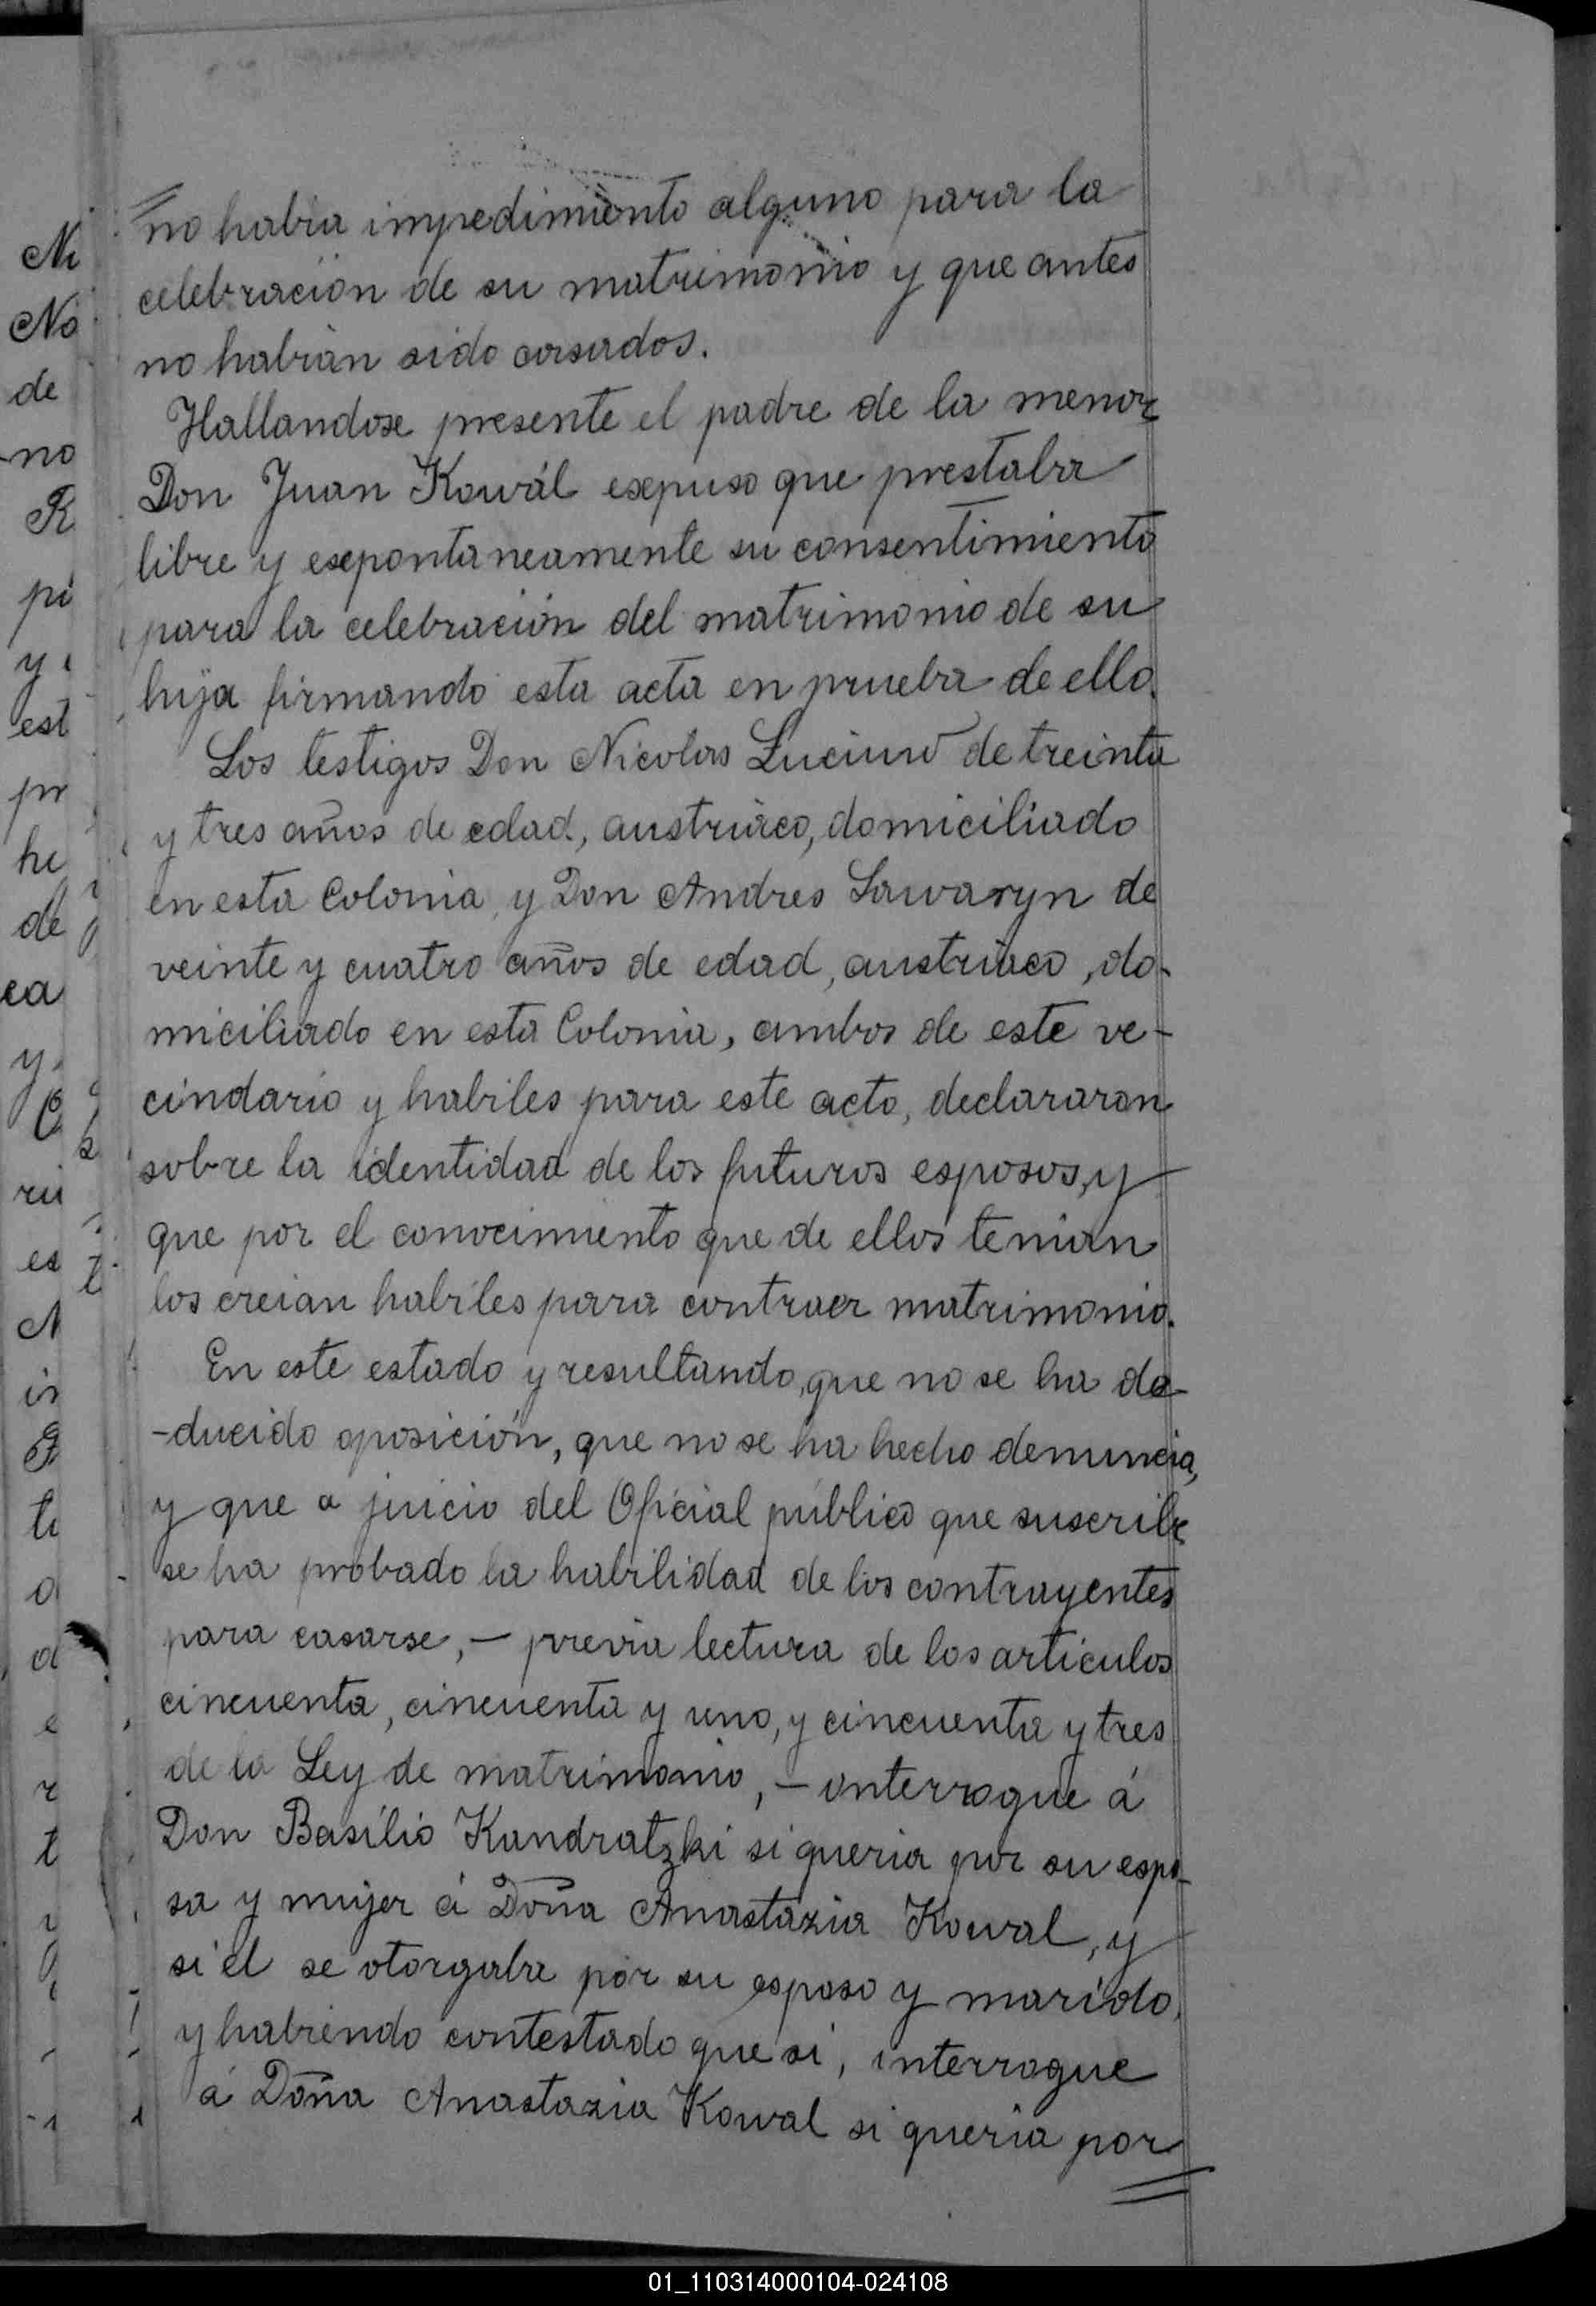 no habia impedimiento alguno para la
celebración de su matrimonio y que antes
no habian sido casados.
Hallandose presente el padre de la menor
Don Juan Kowál expuso que prestaba
libre y expontaneamente su consentimiento
para la celebración del matrimonio de su
hija firmando esta acta en prueba de ello.
Los testigos Don Nicolas de treinta
y tres años de edad, austriaco, domiciliado
en esta Colonia, y Don Andres Lawaryn de
veinte y cuatro años de edad, austriaco, do-
miciliado en esta Colonia, ambos de este ve-
cindario y habiles para este acto, declararon
sobre la identidad de los futuros esposos, y
que por el conocimiento que de ellos tenian
los creian habiles para contraer matrimonio.
En este estado y resultando, que no se ha de-
-ducido oposición, que no se ha hecho denuncia,
y que a juicio del Oficial público que suscribe
se ha probado la habilidad de los contrayentes
para casarse, - previa lectura de los artículos
cincuenta, cincuenta y uno, y cincuenta y tres
de la Ley de matrimonio, - interrogue á
Don Basilio Kundratzki si queria por su espo-
sa y mujer á Doña Anastazia Kowal, y
si él se otorgaba por su esposo y marido,
y habiendo contestado que si, interrogue
á Doña Anastazia Kowal si queria por
01_110314000104-024108